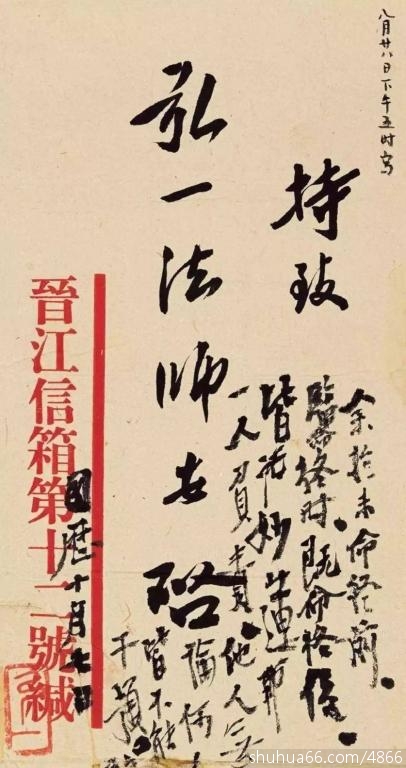 八月廿八日下午五时寫
持致
弘一法師安啓
晉江信箱第十二號緘
余於未命終前、
臨命終時、既命終後、
皆托妙蓮師
一人負責、他人無
論何人
皆不能
干預。
國曆十月七日
shuhua66.com/4866